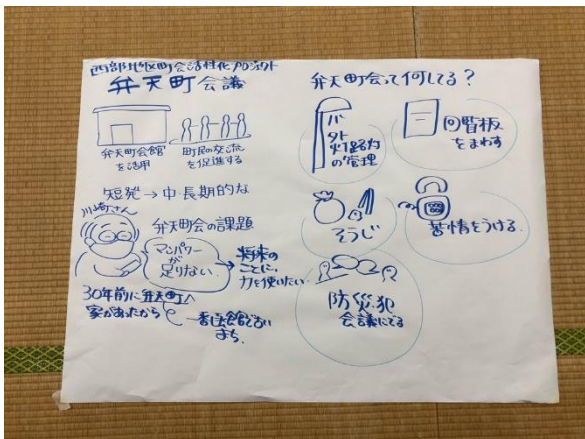 西部地区町会活性化プロジェクト
弁天町会議
弁天町会館
を活用
町民の交流
を促進する
短発→中・長期的な
川崎さん
弁天町会の課題
マンパワー
が
足りない
→将来の
ことに、
力を使いたい
30年前に弁天町へ
家があったから
まち
弁天町会って何してる?
街路灯
の管理
回覧板
をまわす
そうじ
苦情をうける
防災・犯
会議にでる